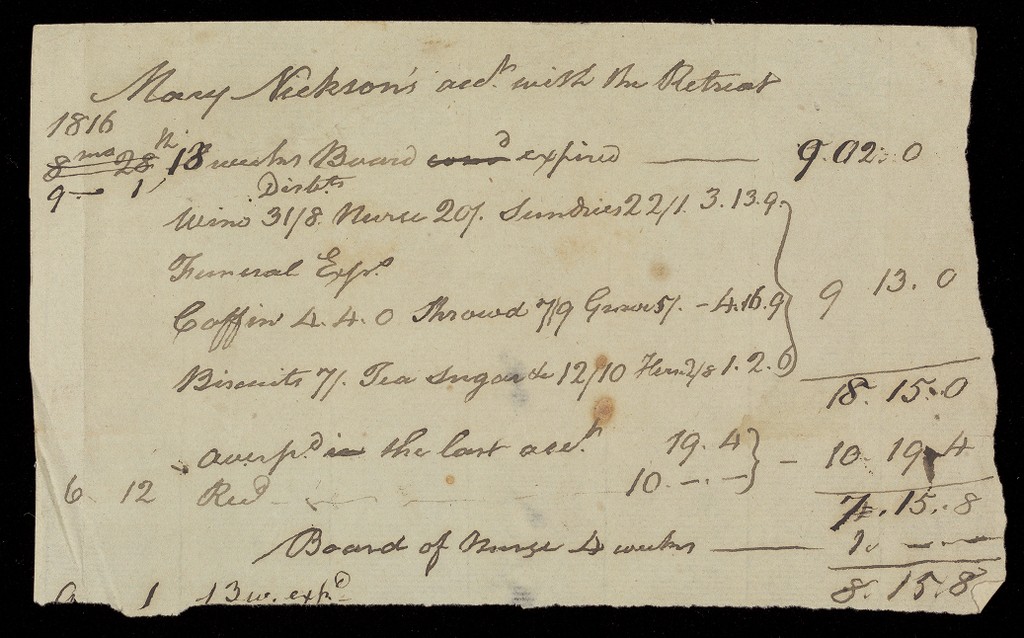 Mary Nickson's acct. with the Retreat
1816
8mo 28th 13 weeks Board expired — 9. 02. 0
9 — 1
Disbts
Wine 31/8. Nurse 20/. Sundries 22/1. 3. 13. 9
Funeral Exps.
9 13. 0
Coffin 4. 4. 0 Shroud 7/9 Grave 5/. - 4. 16. 9
Biscuits 7/. Tea Sugar &c 12/10 2/8 1. 2. 6
18. 15. 0
overpd in the last acct. 19. 4 } - 10. 19. 4
6 12 Recd 10. -. -
7. 15. 8
Board of Nurse 4 weeks — 1. -. -
8. 15. 8
9 1 13 w. expd